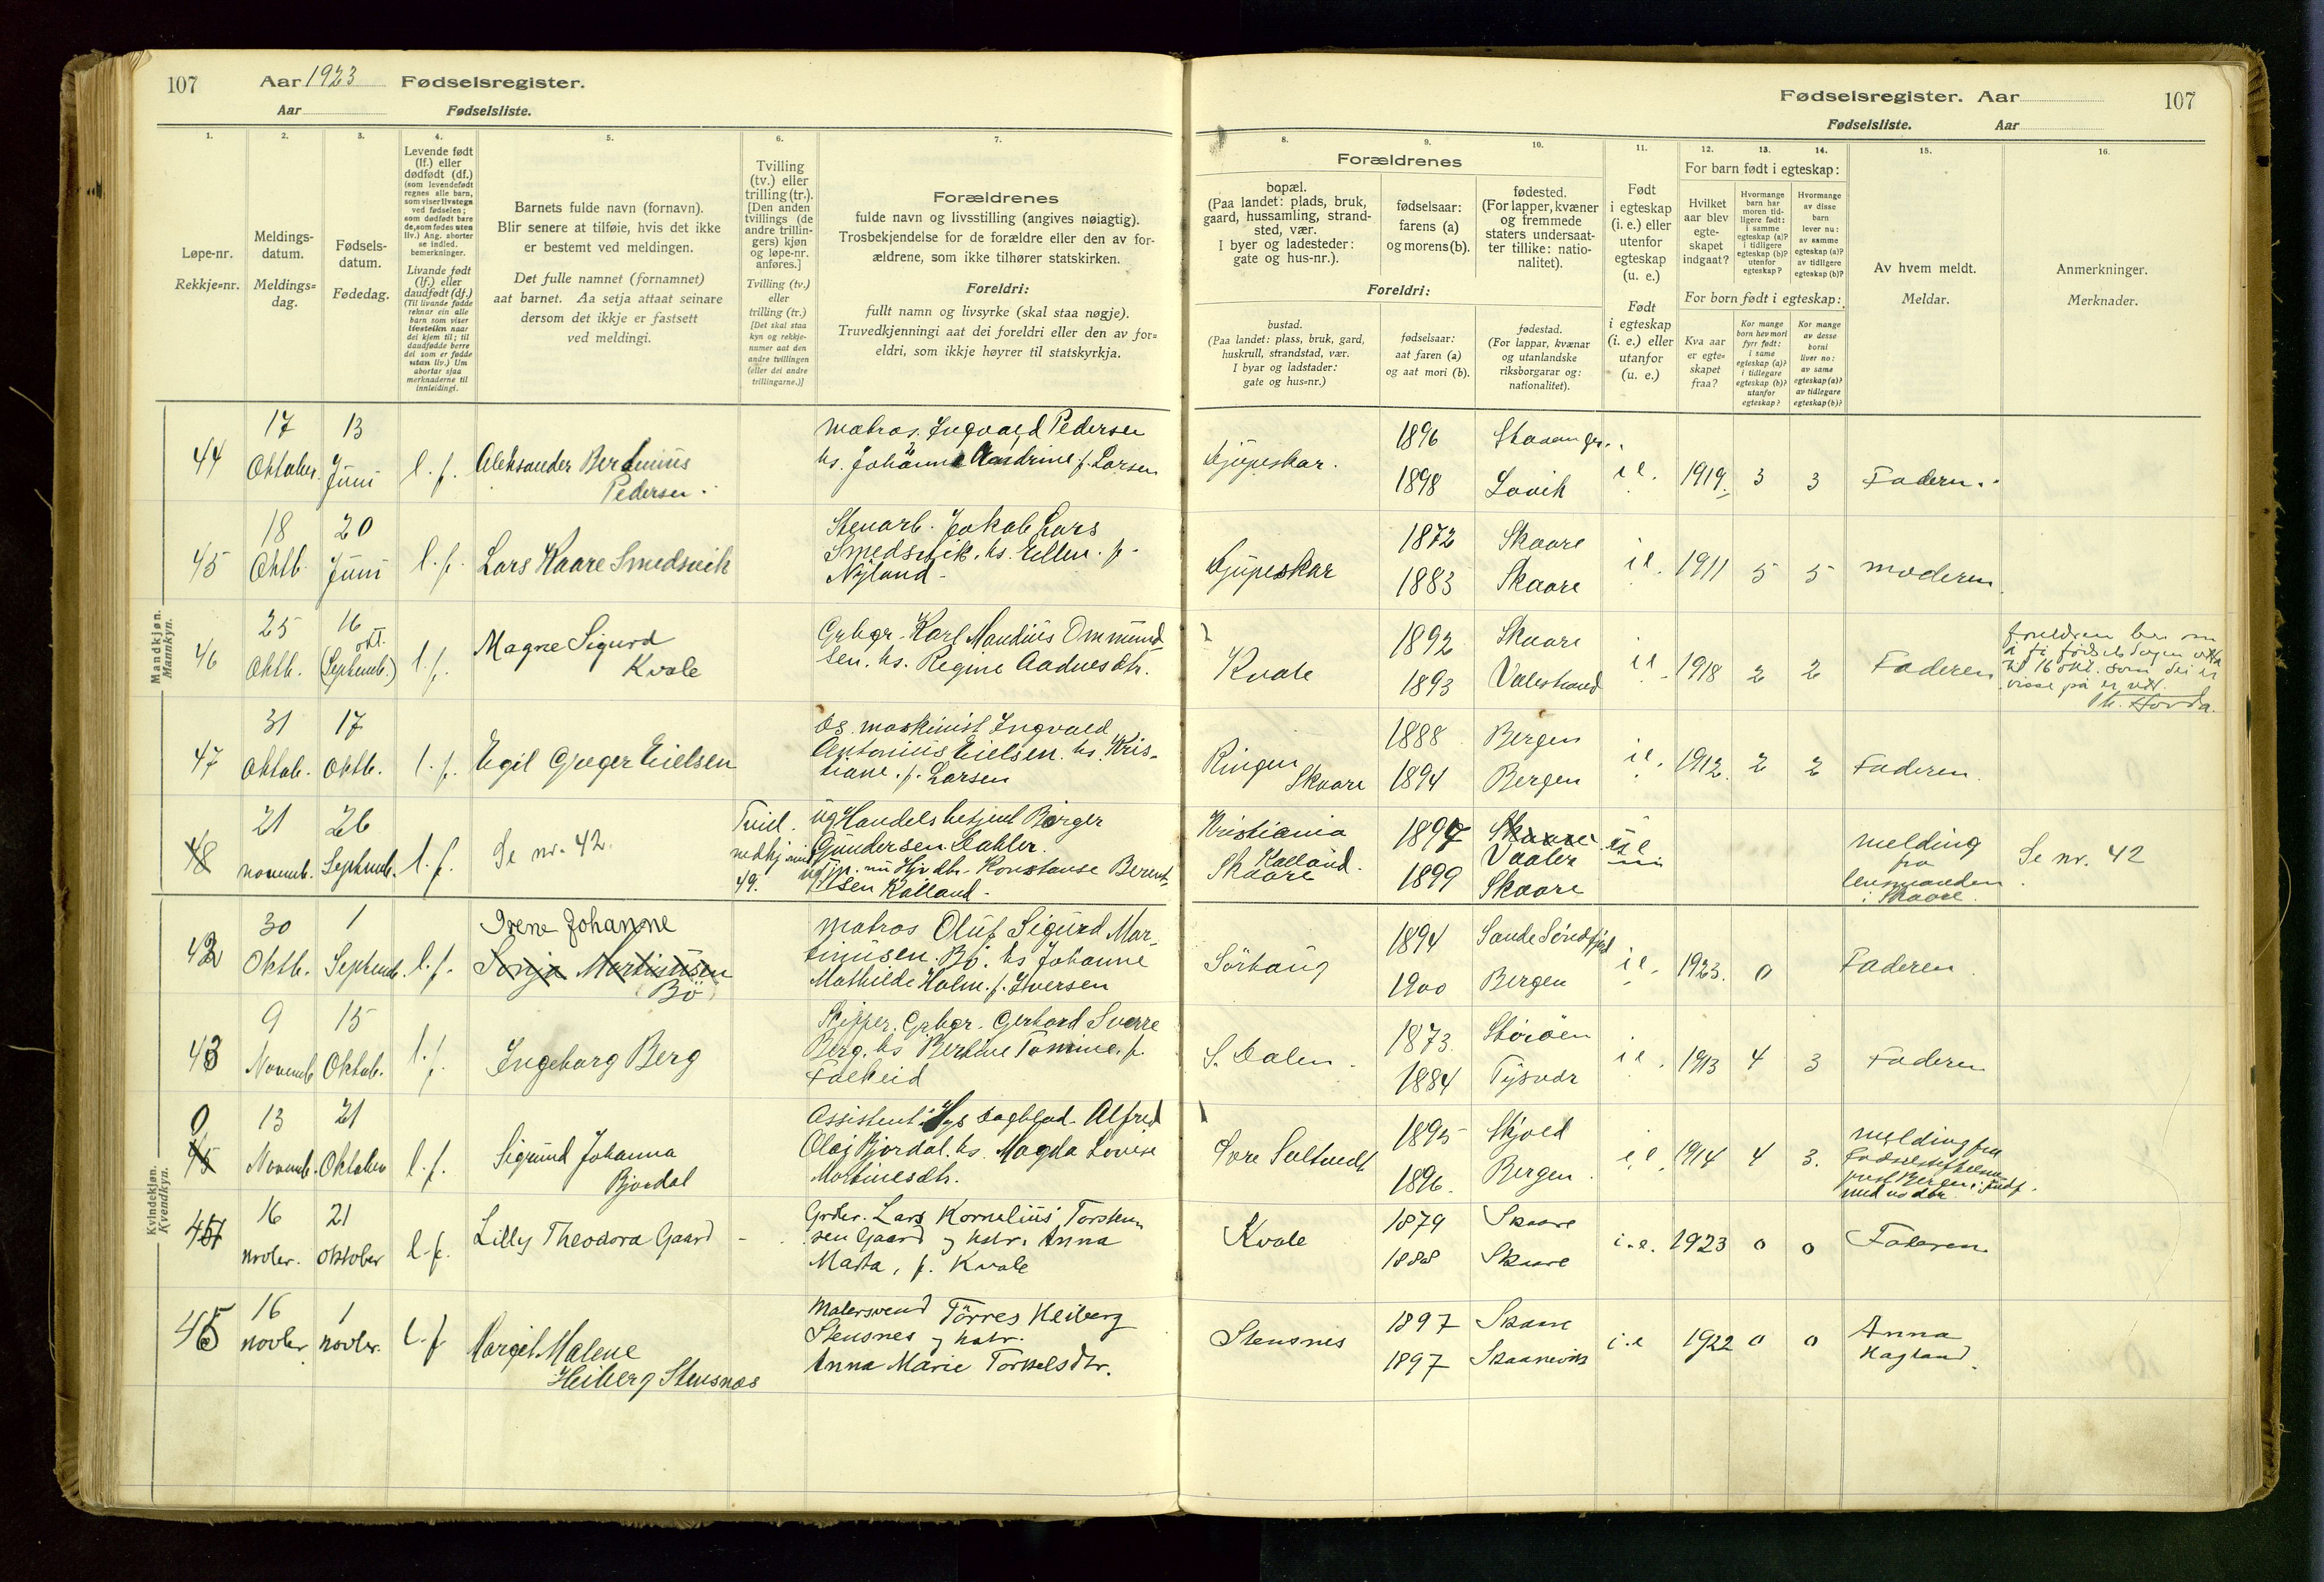 107 Aar 1923 Fødselsregister.
Aar Fødselsliste.
Fødselsregister. Aar 107
Fødselsliste. Aar
1. 2. 3. 4. 5. 6. 7.
Løpe-nr.
Rekkje=nr.
Meldings-
datum.
Meldings=
dag.
Fødsels-
datum.
Fødedag.
Levende født
(lf.) eller
dødfødt (df.)
(som levendefødt
regnes alle barn,
som viser livstegn
ved fødselen;
som dødfødt bare
de, som fødes uten
liv.) Ang. aborter
se indled.
bemerkninger.
Livande født
(lf.) eller
daudfødt (df.)
(Til livande fødde
reknar ein alle
barn som viser
livsteikn naar
dei kjem til; til
daudfødde berre
dei som er fødde
utan liv.) Um
abortar sjaa
merknaderne til
innleidingi.
Barnets fulde navn (fornavn).
Blir senere at tilføie, hvis det ikke
er bestemt ved meldingen.
Det fulle namnet (fornamnet)
aat barnet. Aa setja attaat seinare
dersom det ikkje er fastsett
ved meldingi.
Tvilling
(tv.) eller
trilling (tr.).
[Den anden
tvillings (de
andre trillin-
gers) kjøn
og løpe-nr.
anføres.]
Tvilling (tv.)
eller
trilling (tr.)
[Det skal staa
kyn og rekkje-
numer aat den
andre tvillingen
(eller dei andre
trillingarne.)]
Forældrenes
fulde navn og livsstilling (angives nøiagtig).
Trosbekjendelse for de forældre eller den av for-
ældrene, som ikke tilhører statskirken.
Foreldri:
fullt namn og livsyrke (skal staa nøgje).
Truvedkjenningi aat dei foreldri eller den av for=
eldri, som ikkje høyrer til statskyrkja.
8. 9. 10. 11. 12. 13. 14. 15. 16.
Forældrenes
bopæl.
(Paa landet: plads, bruk,
gaard, hussamling, strand-
sted, vær.
I byer og ladesteder:
gate og hus-nr.).
fødselsaar:
farens (a)
og morens (b).
fødested.
(For lapper, kvæner
og fremmede
staters undersaat-
ter tillike: natio-
nalitet).
Foreldri:
bustad.
(Paa landet: plass, bruk, gard,
huskrull, strandstad, vær.
I byar og ladstader:
gate og hus=nr.)
fødselsaar:
aat faren (a)
og aat mori (b).
fødestad.
(For lappar, kvænar
og utanlandske
riksborgarar og:
nationalitet).
Født
i egteskap
(i. e.) eller
utenfor
egteskap
(u. e.)
Født
i egteskap
(i. e.) eller
utanfor
(u. e.)
For barn født i egteskap:
Hvilket
aar blev
egte-
skapet
indgaat?
Hvormange
barn har
moren tid-
ligere født:
i samme
egteskap (a)?
i tidligere
egteskap (b)?
utenfor
egteskap?
Hvormange
av disse
barn
lever nu:
av samme
egteskap (a)?
av tidligere
egteskap (b)?
For born født i egteskap:
Kva aar
er egte-
skapet
fraa?
Kor mange
born hev mori
fyrr født:
i same
egteskap (a)?
i tidlegare
egteskap (b)?
utanfor
egteskap?
Kor mange
av desse
borni
liver no:
av same
egteskap (a)?
av tidlegare
egteskap (b)?
Av hvem meldt.
Meldar.
Anmerkninger.
Merknader.
Mandkjøn.
Mannkyn.
44 17 Oktober. 13 Juni l. f. Aleksander
Pedersen.
matros. Ingvald Pedersen
hs. Johanne f. Larsen
Gjüpeskar. 1896 Stavanger. 1898 Lavik i e. 1919. 3 3 Faderen.
45 18 Oktb. 20 Juni l. f. Lars Kaare Smedsvik
Stenarb. Jakob Lars
Smedsvik. hs. Ellen. f.
Nyland.
Gjüpeskar 1872 Skaare 1883 Skaare i e. 1911 5 5 moderen
46 25 Oktb. 16 okt. (Septemb.) l. f. Magne Sigurd
Kvale
Grbgr. Karl Mandius Ommund
sen. hs. Regine Aadnesdtr.
Kvale 1892 Skaare 1893 Valestrand i e 1918 2 2 Faderen
til 16 okt. som dei er
visse på er rett.
47 31 Oktob. 17 Oktb. l. f. Egil Gjeger Eielsen
os. maskinist Ingvald
Antonius Eielsen. hs. Kris-
tiane. f. Larsen
Ringen
Skaare 1888 Bergen 1894 Bergen i e. 1912. 2 2 Faderen.
48 21 novemb. 26 Septemb. l. f. Se nr. 42.
Tvil.
49.
ug Handelsbetjent Börger
Gundersen Dahler.
Konstanse Berent
sen Kalland.
Kristiania
Kalland.
Skaare 1897 Skaare Vaaler 1899 Skaare
melding
fra
lensmanden
i Skaare.
Se nr. 42
Kvindekjøn.
Kvendkyn.
42 30 Oktb. 1 Septemb. l. f. Irene Johanne
Sonja Martinusen
Bö
matros Oluf Sigurd Mar-
tinusen. Bö. hs Johanne
Mathilde Holm. f. Iversen
Sörhaug 1894 Sande Söndfjord 1900 Bergen i e. 1923. 0 Faderen
43 9 Novemb 15 Oktob. l. f. Ingeborg Berg
Skipper. Grbgr. Gerhard Sverre
Berg. hs Bertine Tomine. f.
Falkeid
S. Dalen. 1873. Störöen 1884 Tysvær i e. 1913 4 3 Faderen
0 45 13 Novemb. 21 Oktober l. f. Sigrund Johanna
Bjordal
Assistent. Hgs Dagblad. Alfred
Olaj Bjordal. hs. Magda Lovise
Mortinesdtr.
Söre Saltvedt 1895 Skjold 1896. Bergen i e. 1914 4 3.
melding fra
Födselsstiftelsen
Bergen
44 16 novbr. 21 oktober l. f. Lilly Theodora Gaard -
Grbr. Lars Kornelius Torsten
sen Gaard og hstr. Anna
Marta, f. Kvale
Kvale 1879 Skaare 1888 Skaare i. e. 1923 0 0 Faderen
45 16 novbr 1 novbr. l. f Margit Malene
Heiberg Stensnes
Malersvend Törres Heiberg
Stensnes og hstr.
Anna Marie Torkelsdtr.
Stensnes 1897 Skaare 1897 Skaanevik i. e 1922 0 0 Anna
Hagland.